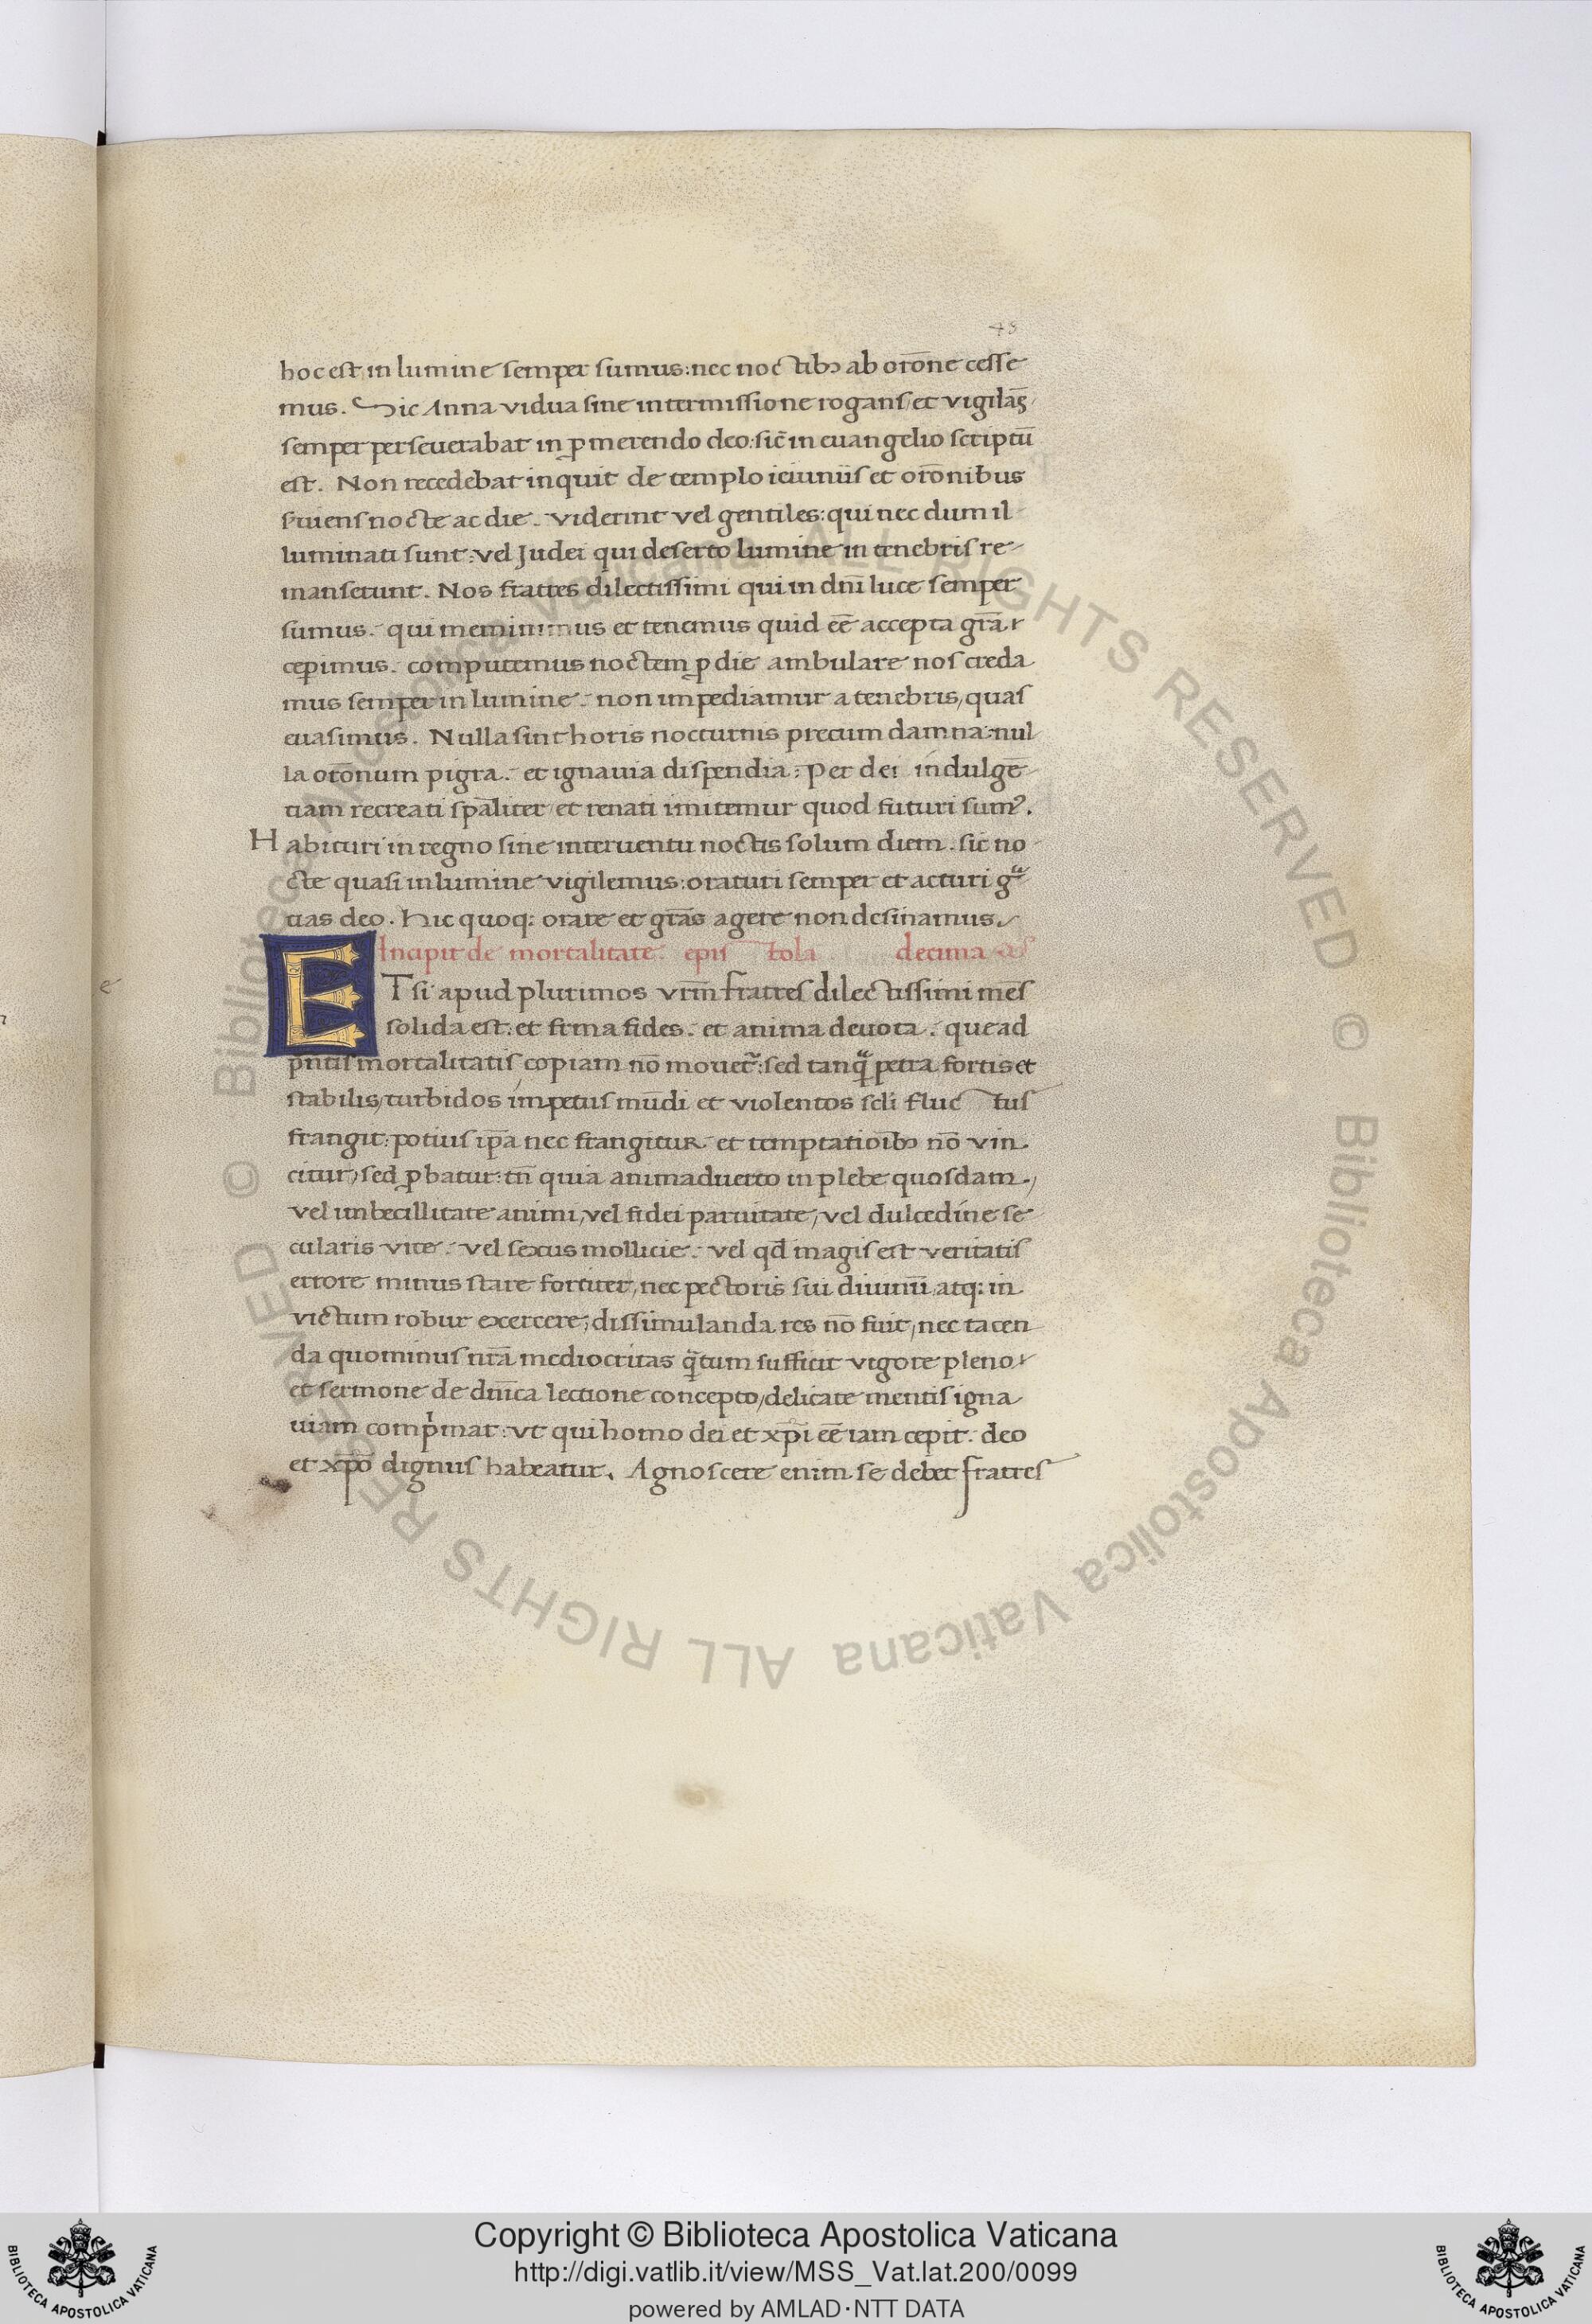 48
hoc est in lumine semper sumus: nec noctibꝫ ab orōne cesse
mus. Sic Anna vidua sine intermissione rogans et vigilās
semper perseverabat in ꝓmerendo deo: sic̄ in euangelio scriptū
est. Non recedebat inquit de templo ieiuniis et orōnibus
s̓uiens nocte ac die. viderint vel gentiles: qui nec dum il
luminati sunt: vel Judei qui deserto lumine in tenebris re
manserunt. Nos fratres dilectissimi qui in dn̄i luce semper
sumus. qui meminimus et tenemus quid eē accepta gr̄a
cepimus. computemus noctem ꝓ die ambulare nos creda
mus semper in lumine. non impediamur a tenebris, quas
euasimus. Nulla sint horis nocturnis precum damna: nul
la orōnum pigra. et ignauia dispendia: Per dei indulgē
tiam recreati sp̄aliter et renati imitemur quod futuri sumꝰ.
Habituri in regno sine interuentu noctis solum diem. sic no
cte quasi in lumine vigilemus: oraturi semper et acturi gᵃ
tias deo. Hic quoq: orare et gr̄as agere non desinamus.
Incipit de mortalitate. epistola decima
ETsi apud plurimos vr̄m fratres dilectissimi mēs
solida est: et firma fides. et anima deuota. que ad
pn̄tis mortalitatis copiam nō mouet̄: sed tanqᵃ petra fortis et
stabilis, turbidos impetus mūdi et violentos scl̄i fluctus
frangit: potius ip̄a nec frangitur. et temptatiōibꝫ nō vin
citur, sed ꝓbatur: tn̄ quia animaduerto in plebe quosdam,
vel imbecillitate animi, vel fidei paruitate, vel dulcedine se
cularis vite. vel sexus mollicie. vel qd̄ magis est veritatis
errore minus stare fortiter, nec pectoris sui diuinū atq: in
victum robur exercere; dissimulanda res nō fuit, nec tacen
da quominus nr̄a mediocritas qᵃtum sufficit vigore pleno
et sermone de dn̄ica lectione concepto, delicate mentis igna
uiam compⁱmat: vt qui homo dei et xp̄i eē iam cepit. deo
et xp̄o dignus habeatur. Agnoscere enim se debet fratres
© Biblioteca Apostolica Vaticana ALL RIGHTS RESERVED © Biblioteca Apostolica Vaticana ALL RIGHTS RESERVED
Copyright © Biblioteca Apostolica Vaticana
http://digi.vatlib.it/view/MSS_Vat.lat.200/0099
powered by AMLAD·NTT DATA
BIBLIOTECA APOSTOLICA VATICANA
BIBLIOTECA APOSTOLICA VATICANA